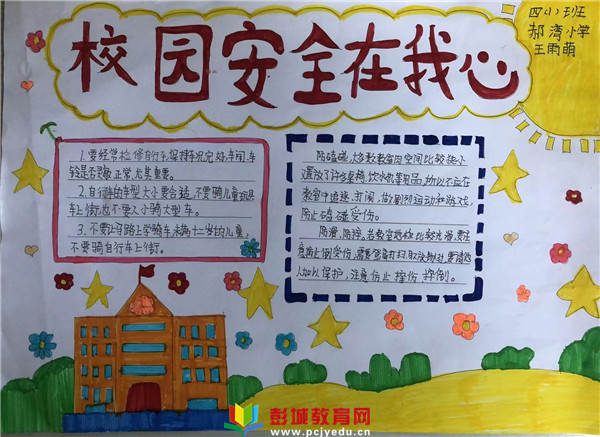 校园安全在我心
四(1)班
郝湾小学
王雨萌
1.要经常检修自行车,保持车况完好,车闸、车
铃是不灵敏正常,尤其重要。
2.自行车的车型大小要合适,不要骑儿童玩具
车上街,也不要人小骑大型车。
3.不要让马路上学骑车,未满十二岁的儿童,
不要骑自行车上街。
防磕碰,大多数教室内空间比较狭小
饮水机等用品,所以不应在
教室中追逐、打闹,做剧烈运动和游戏,
防止磕碰受伤。
防滑、防摔。若教室地板比较光滑,要注
意防止滑倒受伤,
人加以保护,注意防止摔伤
彭城教育网
www.pcjyedu.cn